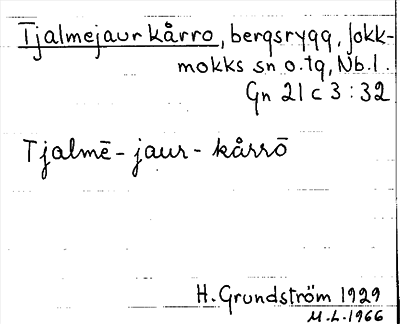 Tjalmejaurkårro, bergsrygg, Jokk-
mokks sn o. tg, Nb. l.
Gn 21 c 3 : 32
Tjalmē - jaur - kårrō
H. Grundström 1929
M.L. 1966